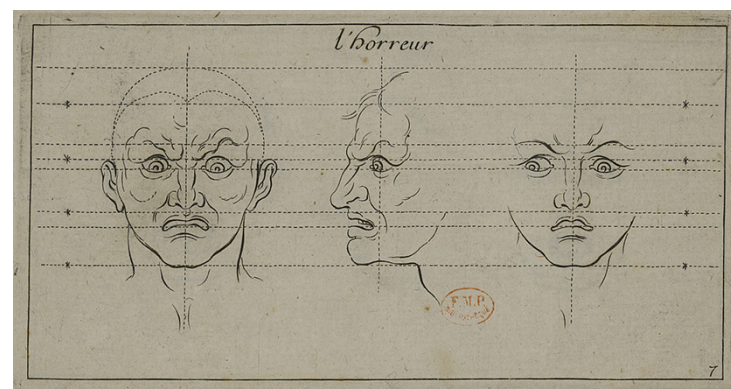 l'horreur
F.M.P.
7